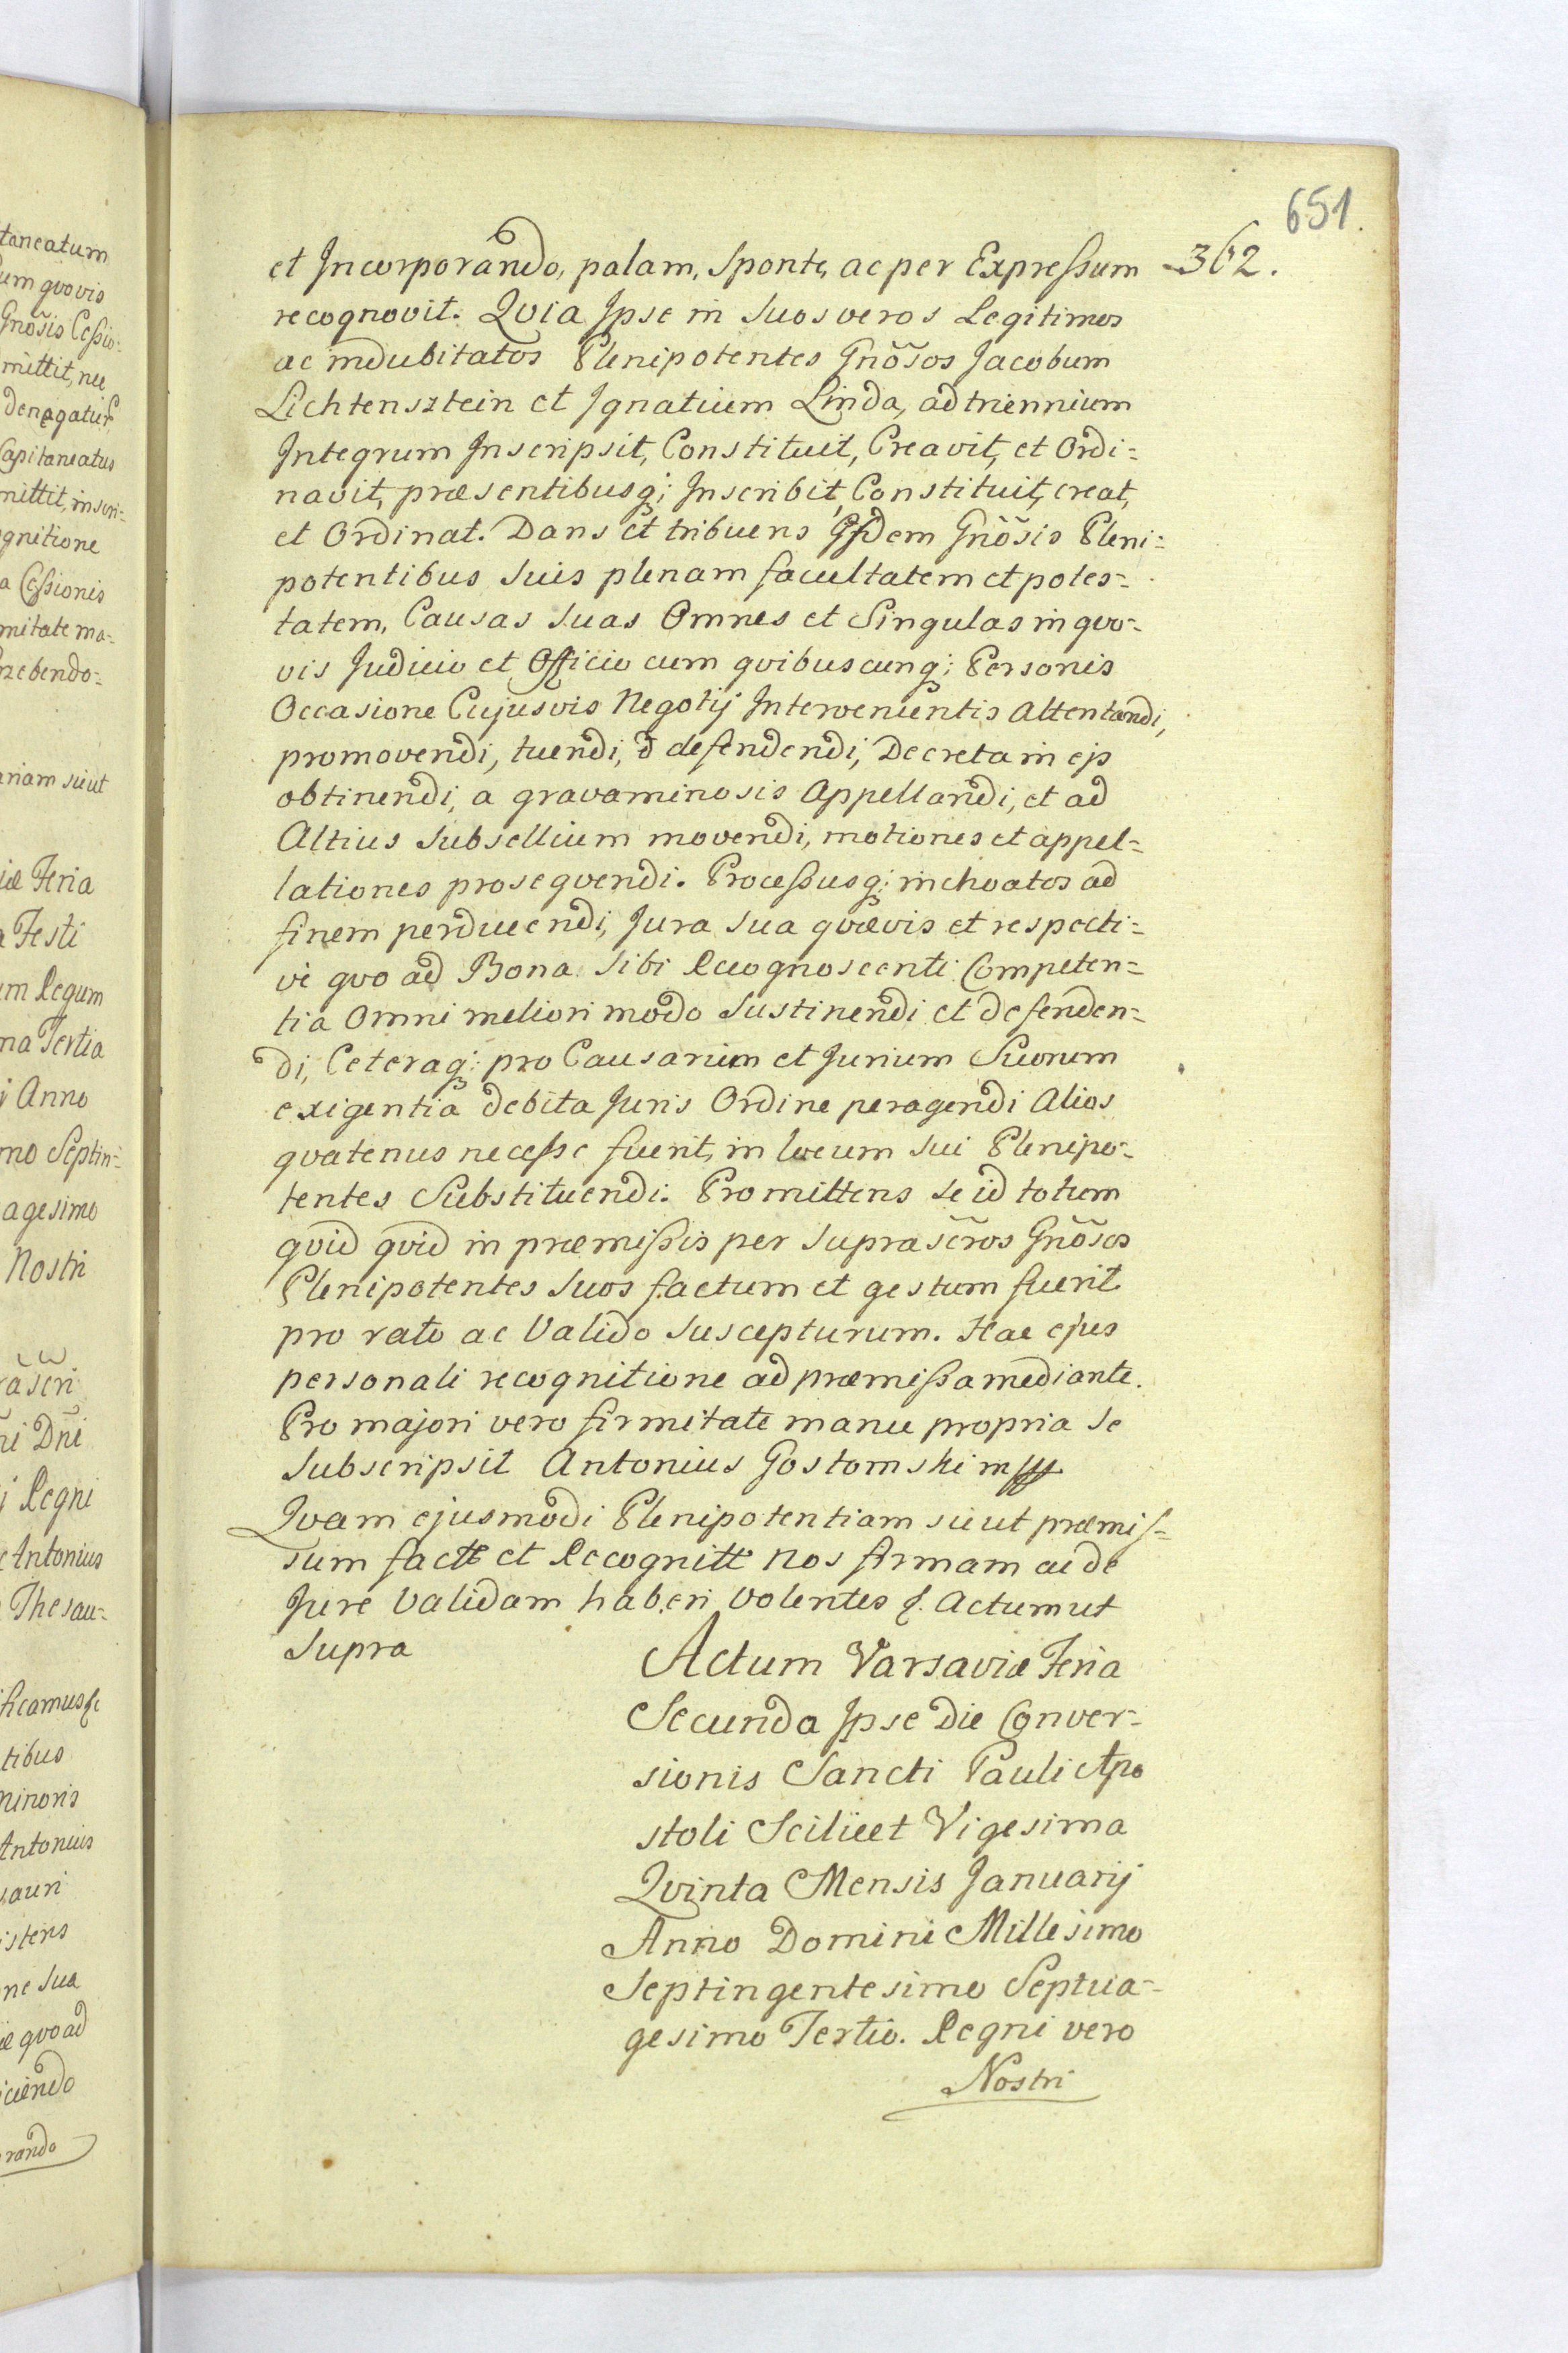 651.
362.
et Incorporando, palam, sponte, ac per Expressum
recognovit. Qvia Ipse in suos veros Legitimos
ac indubitatos Plenipotentes Gnõsos Jacobum
Lichtensztein et Ignatium Linda, ad triennium
Integrum Inscripsit, Constituit, Creavit, et Ordi=
navit, præsentibusq; Inscribit, Constituit, creat,
et Ordinat. Dans et tribuens Gnõsis Pleni=
potentibus suis plenam facultatem et potes=
tatem, Causas suas Omnes et Singulas in qvo=
vis Judicio et Officio cum qvibuscunq; Personis
Occasione Cujusvis Negotij Intervenientis Attentandi,
promovendi, tuendi, defendendi, Decreta in ejs
obtinendi, a gravaminosis Appellandi, et ad
Altius subsellium movendi, motiones et appel=
lationes proseqvendi. Processusq; inchoatos ad
finem perducendi, Jura sua qvævis et respecti=
vè qvo ad Bona sibi Recognoscenti Competen=
tia Omni meliori modo sustinendi et defenden=
di, Ceteraq; pro Causarum et Jurium Suorum
exigentia debita Juris Ordine peragendi Alios
qvatenus necesse fuerit, in locum sui Plenipo=
tentes Substituendi. Promittens se id totum
qvid qvid in præmissis per supra scr̃os Gnõsos
Plenipotentes suos factum et gestum fuerit
pro rato ac Valido suscepturum. Hac ejus
personali recognitione ad præmissa mediante.
Pro majori vero firmitate manu propria se
subscripsit Antonius Gostomski mpp
Qvam ejusmodi Plenipotentiam sicut præmis=
sum factt et Recognitt nos firmam ac de
Jure Validam haberi volentes &. Actum ut
supra
Actum Varsaviæ Feria
Secunda Ipse Die Conver=
sionis Sancti Pauli Apo
stoli Scilicet Vigesima
Qvinta Mensis Januarij
Anno Domini Millesimo
Septingentesimo Septua=
gesimo Tertio. Regni vero
Nostri